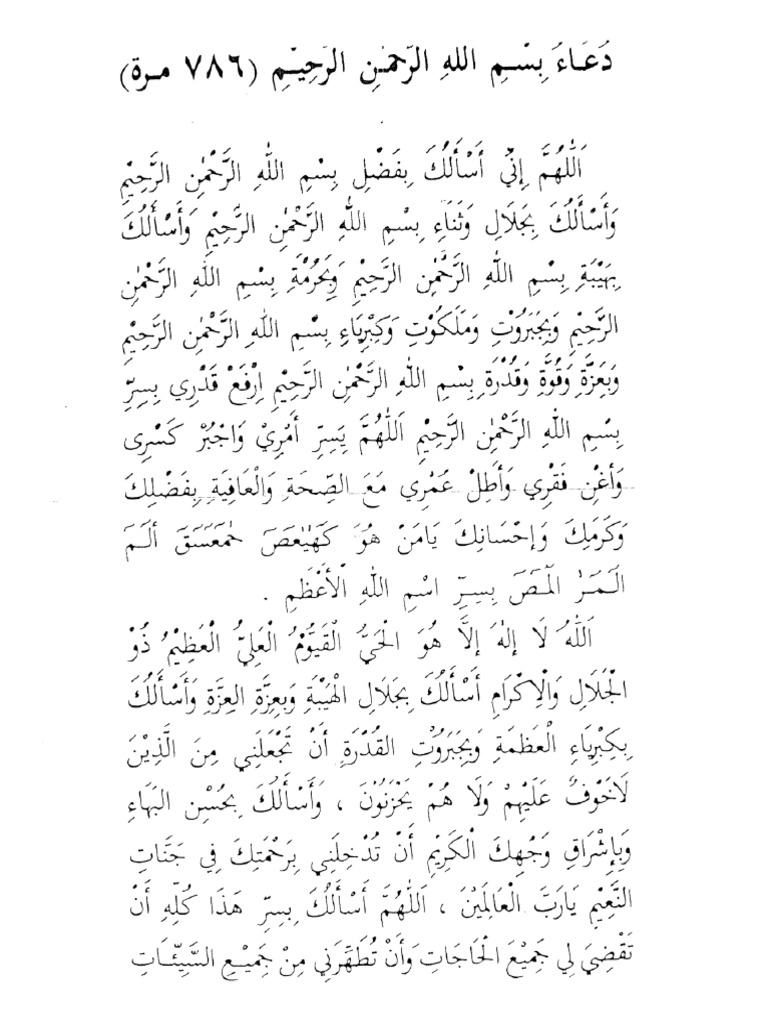 دُعَاءُ بِسْمِ اللهِ الرَّحْمٰنِ الرَّحِيْمِ (٧٨٦ مرة)
اَللّٰهُمَّ إِنِّيْ أَسْأَلُكَ بِفَضْلِ بِسْمِ اللّٰهِ الرَّحْمٰنِ الرَّحِيْمِ
وَأَسْأَلُكَ بِجَلَالِ وَثَنَاءِ بِسْمِ اللّٰهِ الرَّحْمٰنِ الرَّحِيْمِ وَأَسْأَلُكَ
بِهَيْبَةِ بِسْمِ اللّٰهِ الرَّحْمٰنِ الرَّحِيْمِ وَبِحُرْمَةِ بِسْمِ اللّٰهِ الرَّحْمٰنِ
الرَّحِيْمِ وَبِجَبَرُوْتِ وَمَلَكُوْتِ وَكِبْرِيَاءِ بِسْمِ اللّٰهِ الرَّحْمٰنِ الرَّحِيْمِ
وَبَعِزَّةِ وَقُوَّةِ وَقُدْرَةِ بِسْمِ اللّٰهِ الرَّحْمٰنِ الرَّحِيْمِ اِرْفَعْ قَدْرِي بِسِرِّ
بِسْمِ اللّٰهِ الرَّحْمٰنِ الرَّحِيْمِ اَللّٰهُمَّ يَسِّرِ أَمْرِيْ وَاجْبُرْ كَسْرِى
وَأَغْنِ فَقْرِي وَأَطِلْ عَمْرِي مَعَ الصِّحَةِ وَالْعَافِيَةِ بِفَضْلِكَ
وَكَرَمِكَ وَإحْسَانِكَ يَامَنْ هُوَ كَهٰيٰعَصَ حٰمَعَسَقَ ألَـمَ
الَـمَـرٰ الٓمَـصَ بِسِـرِّ اسْمِ اللّٰهِ الْأَعْظَمِ .
اَللّٰهُ لَا إِلٰهَ إِلَّا هُوَ الْحَيُّ الْقَيُّوْمُ الْعَلِيُّ الْعَظِيْمُ ذُوْ
الْجَلَالِ وَالْاِكْرَامِ أَسْأَلُكَ بِجَلَالِ الْهَيْبَةِ وَبِعِزَّةِ العِزَّةِ وَأَسْأَلُكَ
بِكِبْرِيَاءِ الْعَظَمَةِ وَبِجَبَرُوْتِ القُدْرَةِ أَنْ تَجْعَلَنِي مِنَ الَّذِيْنَ
لَاخَوْفٌ عَلَيْهِمْ وَلَا هُمْ يَحْزَنُوْنَ ، وَأَسْأَلُكَ بِحُسْنِ البَهَاءِ
وَبِإِشْرَاقِ وَجْهِكَ الْكَرِيْمِ أَنْ تُدْخِلَنِي بِرَحْمَتِكَ فِي جَنَّاتِ
النَّعِيْمِ يَارَبَّ الْعَالَمِيْنَ ، اَللّٰهُمَّ أَسْأَلُكَ بِسِرِّ هَذَا كُلِّهِ أَنْ
تَقْضِيَ لِي جَمِيْعَ الْحَاجَاتِ وَأَنْ تُطَهِّرَنِي مِنْ جَمِيْعِ السَّيِّئَـاتِ